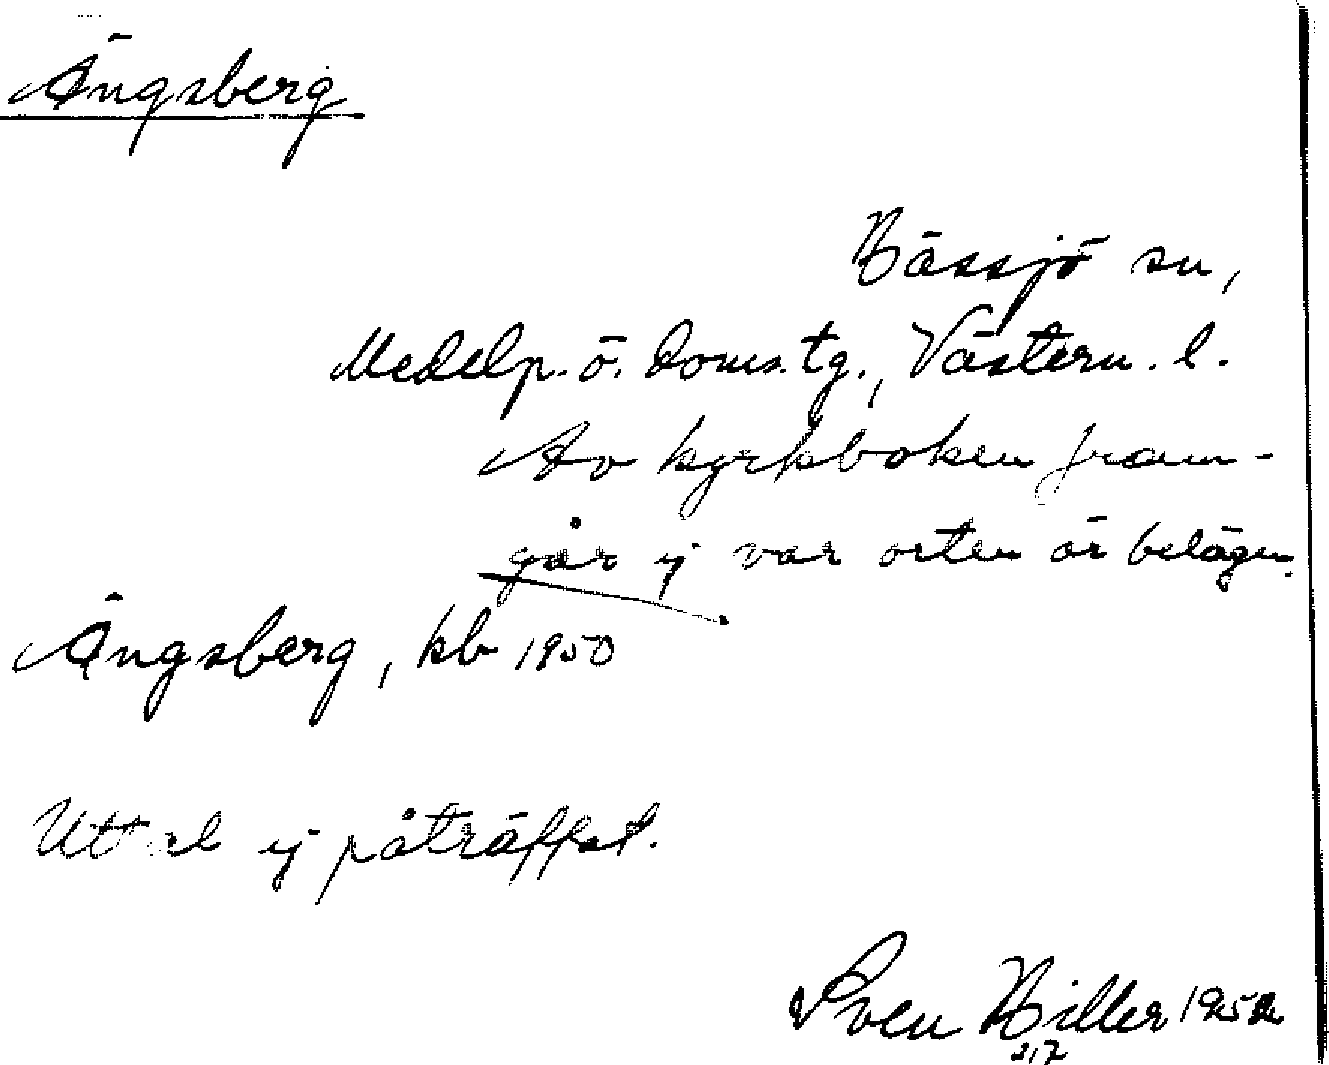 Ängsberg
Hässjö sn,
Medelp. ö. doms. tg., Västern. l.
Av kyrkboken fram-
går ej var orten är belägen.
Ängsberg, kb 1950
Uttal ej påträffat.
Sven Hiller 1952